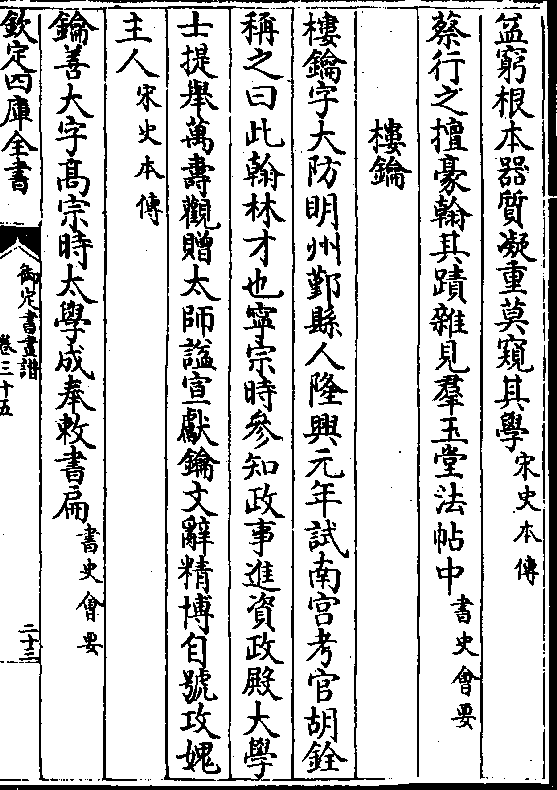 益窮根本器質凝重莫窺其學宋史本傳
蔡行之擅豪翰其蹟雜見羣玉堂法帖中書史會要
樓鑰
樓鑰字大防明州鄞縣人隆興元年試南宫考官胡銓
稱之曰此翰林才也寧宗時參知政事進資政殿大學
士提舉萬壽觀贈太師諡宣獻鑰文辭精博自號攻媿
主人宋史本傳
鑰善大字髙宗時太學成奉敕書扁書史會要
欽定四庫全書
御定書畫譜
卷三十五
二十三